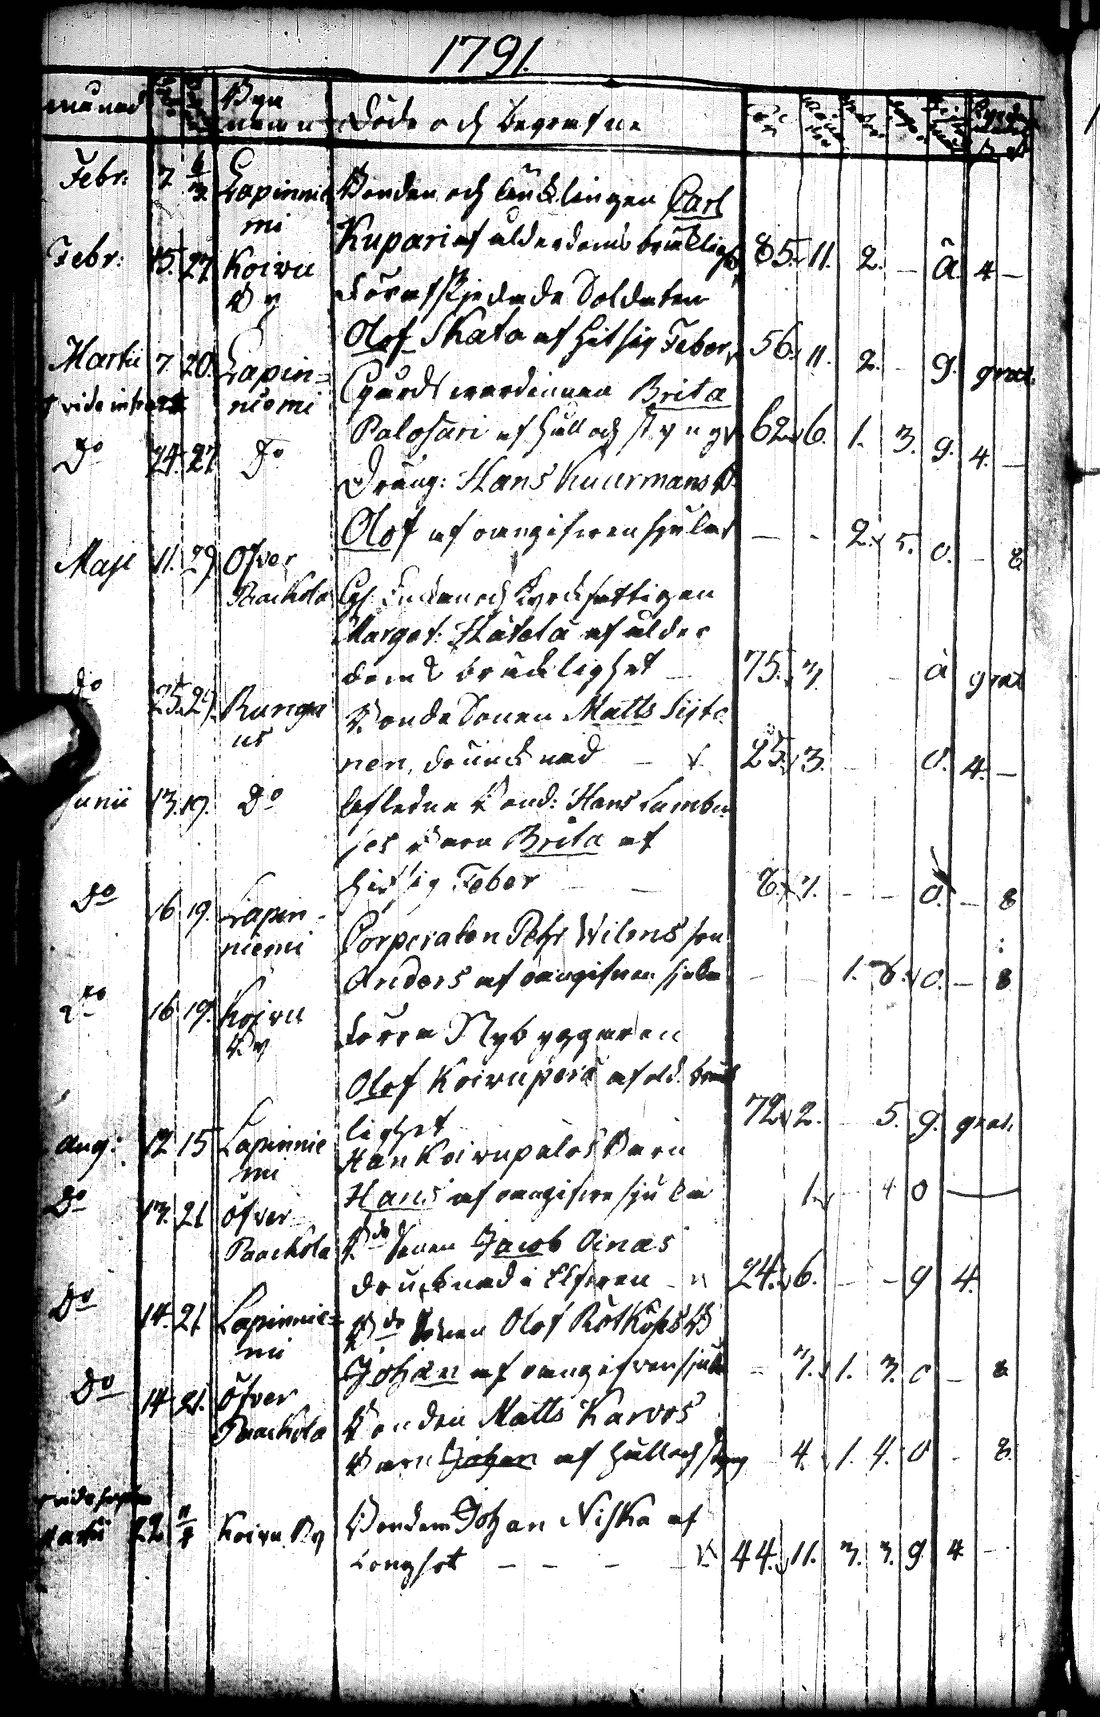 1791.
månad Byn namn Döde och begrafne
Febr: 7. 6/3. Lapinnie Bonden och Encklingen Carl
mi Kupari af ålderdoms bräcklighet 85. 11. 2. — ä. 4 —
Febr: 15. 27. Koivu
By Förafskjedade Soldaten
Olof Skata af hitsig Feber 56. 11. 2. — g. grat.
Martii 7. 20. Lapin=
vide infra niemi Gårdswärdinnan Brita
Palosari af håll och styng 62. 6. 1. 3. g. 4. —
Do 24. 27 Do
Dräng: Hans Kuurmans B.
Olof af oangifven sjukd — - 2. 5. o. — 8.
Maji 11. 29. Öfver
Paackola Gl. Enckan och Kyrckfattigen
Margat: af ålder
doms bräcklighet 75. 7. — ä grat
Do 25. 29. Runga
us Bonde Sonen Matts Sipto
nen, drunknad — 25. 3. — o. 4. —
Junii 13. 19. Do Afledne Bond: Hans Lambe
jes Barn Brita af
hitsig Feber — 8. 7. — — o. — 8
Do 16 19. Lapin-
niemi Corporalen Pehr Wilens son
Anders af oangifven sjukd — 1. 6. o. — 8
Do 16 19. Koivu
By Förre Nybyggaren
Olof Koivupera af åld. bräck
lighet 72. 2. — 5. g. grat.
Aug: 12 15 Lapinnie
mi Han Koivupalos Barn
Hans af oangifven sjukd 1. — 4 o —
Do 13. 21 Öfver
Paackola Bde Sonen Jacob Oinas
drunknad i Elfven — 24. 6. — — g 4.
Do 14. 21. Lapinnie=
mi Bde Sonen Olof Rötkös B
Johan af oangifven sjukd — 7. 1. 3. o — 8
Do 14 21. Öfver
Paackola Bonden Matts Karvos
Barn Johan af håll och styng 4. 1. 4. o - 8.
Martii 22 11/4 Koivu By Bonden Johan Niska af
Longsot — — — 44. 11. 3. 3. g. 4 —